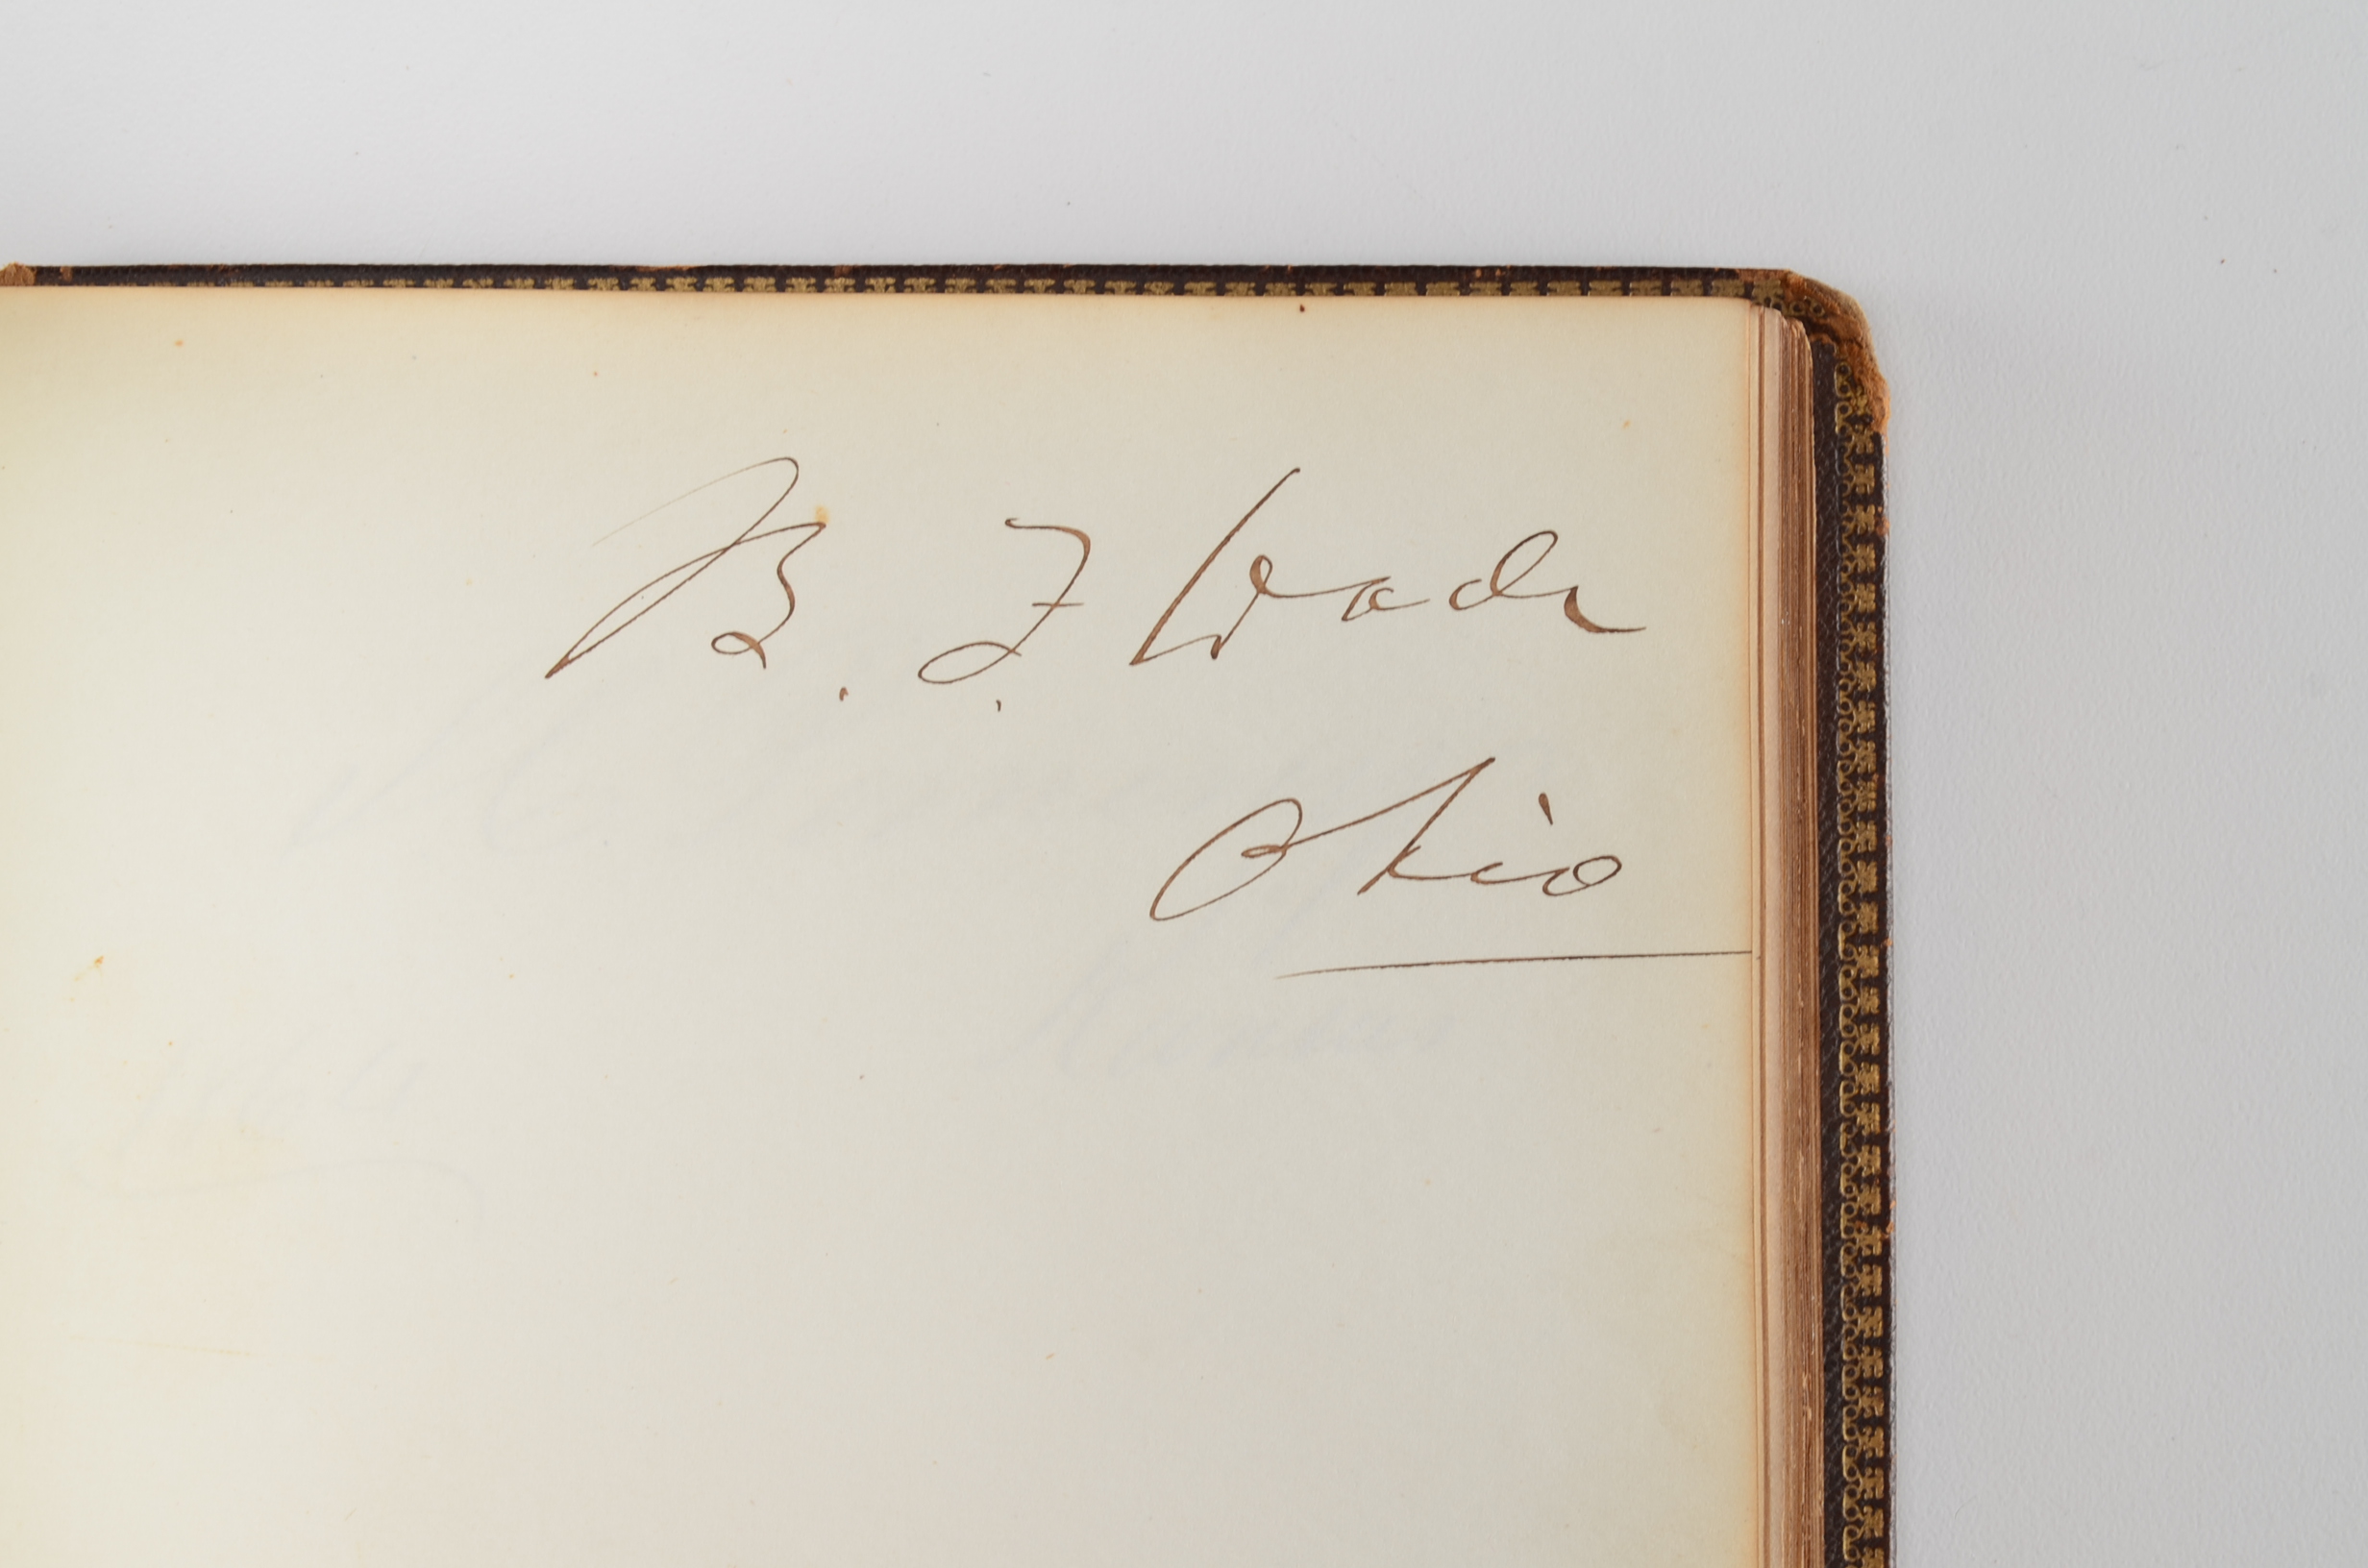 B. F. Wade
Ohio